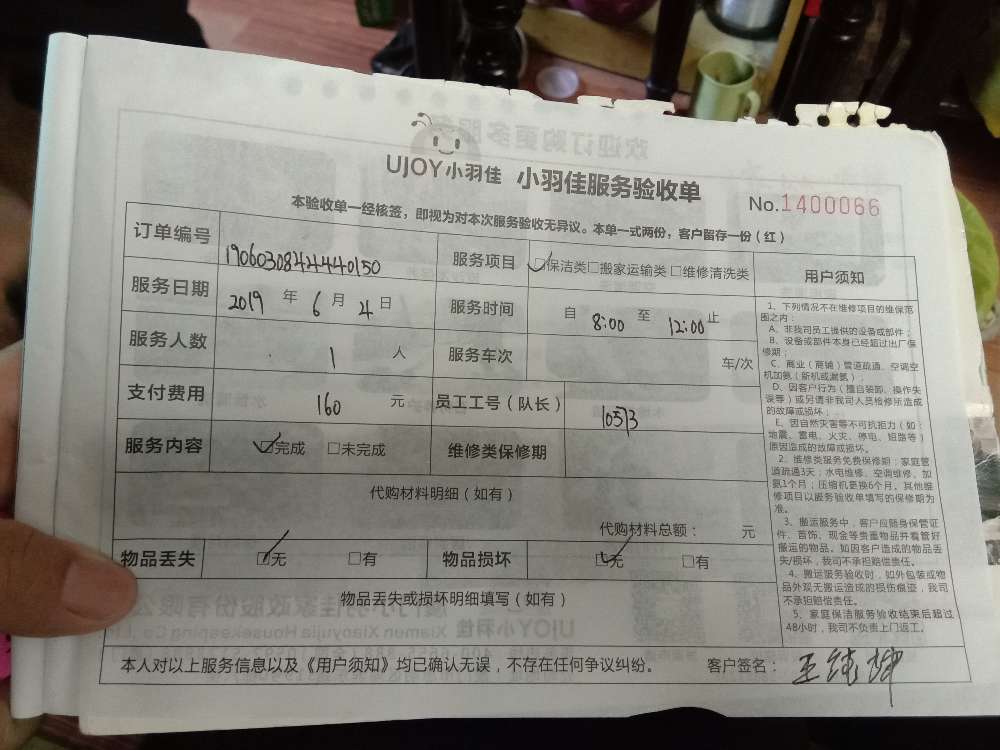 UJOY小羽佳 小羽佳服务验收单 No.1400066
本验收单一经核签，即视为对本次服务验收无异议。本单一式两份，客户留存一份（红）
订单编号 服务项目 □保洁类□搬家运输类□维修清洗类 用户须知
服务日期 2019 年 6 月 4 日 服务时间 自 8:00 至 12:00 止
服务人数 1 人 服务车次 车/次
支付费用 160 元 员工工号（队长） 10573
服务内容 □完成 □未完成 维修类保修期
代购材料明细（如有）
代购材料总额： 元
物品丢失 □无 □有 物品损坏 □无 □有
物品丢失或损坏明细填写（如有）
1、下列情况不在维修项目的维保范
围之内：
A、非我司员工提供的设备或部件；
B、设备或部件本身已经超过出厂保
修期；
C、商业（商铺）管道疏通、空调空
机加氨（新机或漏氨）；
D、因客户行为（擅自装卸、操作失
误等）或另请非我司人员检修所造成
的故障或损坏；
E、因自然灾害等不可抗拒力（如：
地震、雷电、火灾、停电、短路等）
原因造成的故障或损坏。
2、维修类服务免费保修期：家庭管
道疏通3天；水电维修、空调维修、加
氨1个月；压缩机更换6个月。其他维
修项目以服务验收单填写的保修期为
准。
3、搬运服务中，客户应随身保管证
件、首饰、现金等贵重物品并看管好
搬运的物品。如因客户造成的物品丢
失/损坏，我司不承担赔偿责任。
4、搬运服务验收时，如外包装或物
品外观无搬运造成的损伤痕迹，我司
不承担赔偿责任。
5、家庭保洁服务验收结束后超过
48小时，我司不负责上门返工。
本人对以上服务信息以及《用户须知》均已确认无误，不存在任何争议纠纷。 客户签名：